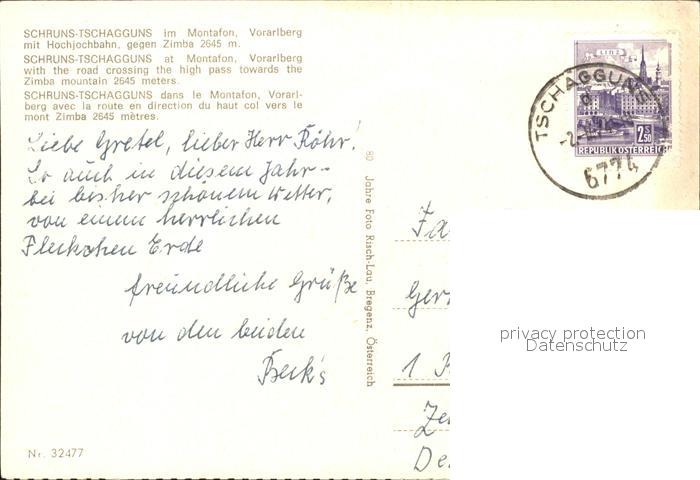 SCHRUNS-TSCHAGGUNS im Montafon, Vorarlberg
mit Hochjochbahn, gegen Zimba 2645 m.
SCHRUNS-TSCHAGGUNS at Montafon, Vorarlberg
with the road crossing the high pass towards the
Zimba mountain 2645 meters.
SCHRUNS-TSCHAGGUNS dans le Montafon, Vorarl-
berg avec la route en direction du haut col vers le
mont Zimba 2645 mètres.
Liebe Gretel, lieber Herr Röhr!
So auch in diesem Jahr-
bei bisher schönem Wetter,
von einem herrlichen
Fleckchen Erde
freundliche Grüße
von den beiden
Beck's
Nr. 32477
80 Jahre Foto Risch-Lau, Bregenz, Österreich
LINZ
2 S 50
REPUBLIK ÖSTERREICH
TSCHAGGUNS
6774
Fa
Ger
1
Ze
De
privacy protection
Datenschutz